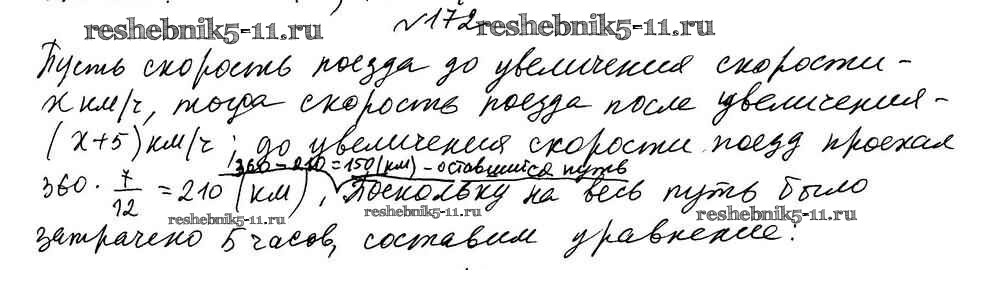 №172
reshebnik5-11.ru reshebnik5-11.ru
Пусть скорость поезда до увеличения скорости -
x км/ч, тогда скорость поезда после увеличения -
(x+5) км/ч; до увеличения скорости поезд проехал
360-210=150(км) - оставшийся путь
360 · 7/12 = 210 (км), Поскольку на весь путь было
reshebnik5-11.ru reshebnik5-11.ru reshebnik5-11.ru
затрачено 5 часов, составим уравнение: